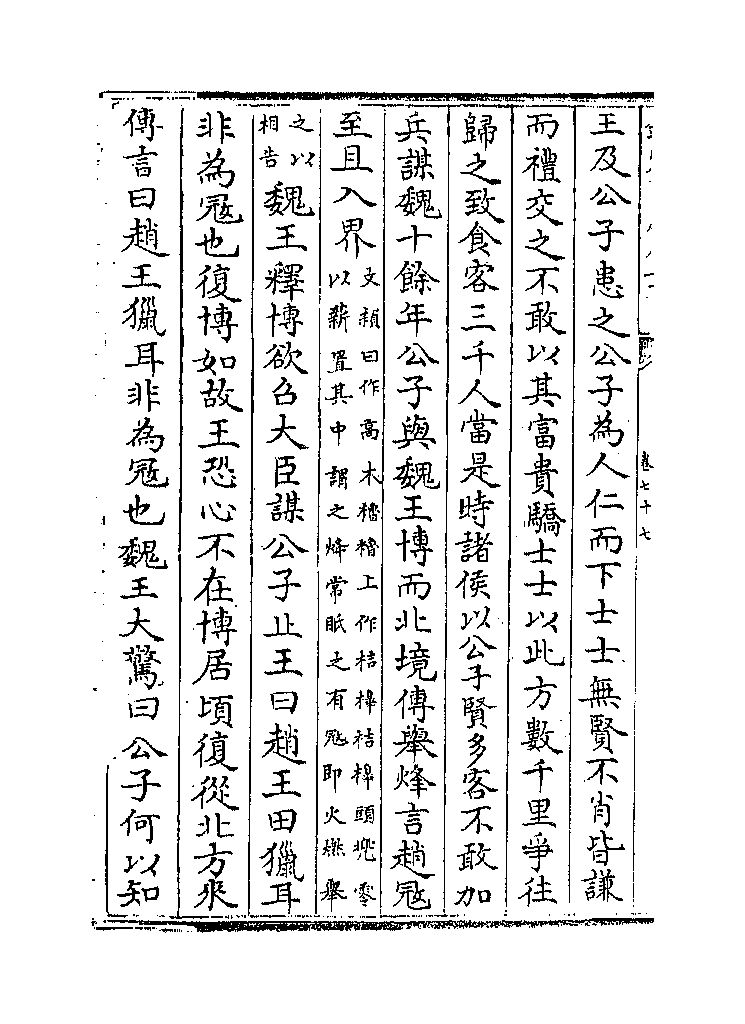 卷七十七
王及公子患之公子為人仁而下士士無賢不肖皆謙
而禮交之不敢以其富貴驕士士以此方數千里爭往
歸之致食客三千人當是時諸侯以公子賢多客不敢加
兵謀魏十餘年公子與魏王博而北境傳舉烽言趙冦
至且入界
文頴曰作高木櫓櫓上作桔橰桔橰頭兠零
以薪置其中謂之烽常眂之有冦即火㷼舉
之以
相告
魏王釋博欲召大臣謀公子止王曰趙王田獵耳
非為冦也復博如故王恐心不在博居頃復從北方來
傳言曰趙王獵耳非為冦也魏王大驚曰公子何以知